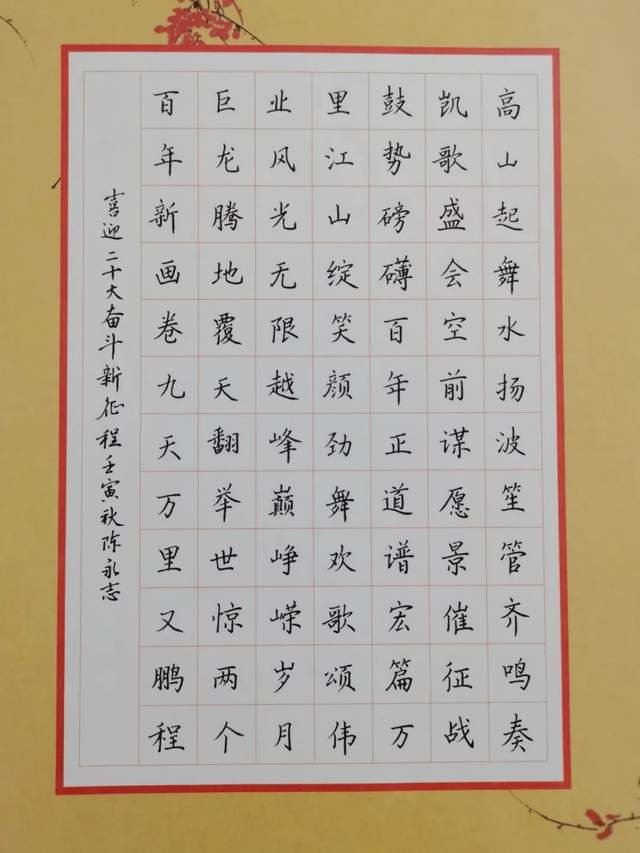 高山起舞水扬波笙管齐鸣奏
凯歌盛会空前谋愿景催征战
鼓势磅礴百年正道谱宏篇万
里江山绽笑颜劲舞欢歌颂伟
业风光无限越峰巅峥嵘岁月
巨龙腾地覆天翻举世惊两个
百年新画卷九天万里又鹏程
喜迎二十大奋斗新征程壬寅秋陈永志